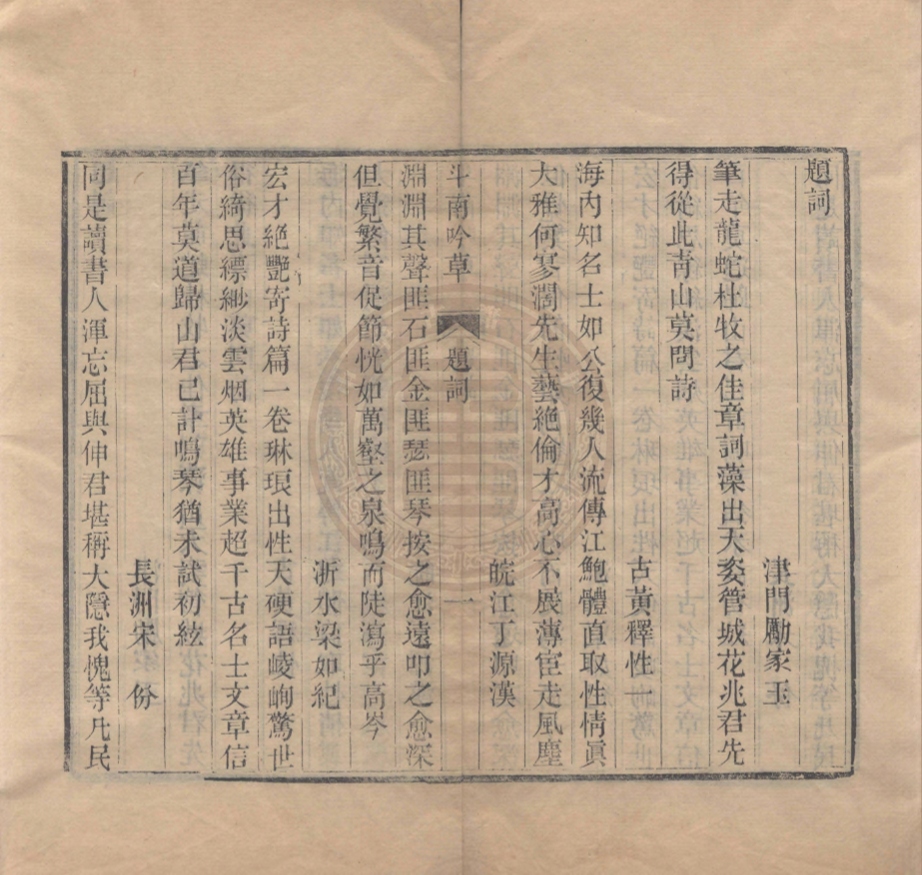 題詞
津門勵家玉
筆走龍蛇杜牧之佳章詞藻出天姿管城花兆君先
得從此青山莫問詩
古黃釋性一
海內知名士如公復幾人流傳江鮑體直取性情眞
大雅何寥濶先生藝絕倫才高心不展薄宦走風塵
皖江丁源漢
斗南吟草 題詞 一
淵淵其聲匪石匪金匪瑟匪琴按之愈遠叩之愈深
但覺繁音促節恍如萬壑之泉鳴而陡瀉乎高岑
浙水梁如紀
宏才絕艷寄詩篇一卷琳琅出性天硬語崚峋驚世
俗綺思縹緲淡雲烟英雄事業超千古名士文章信
百年莫道歸山君已計鳴琴猶未試初絃
長洲宋份
同是讀書人渾忘屈與伸君堪稱大隱我愧等凡民